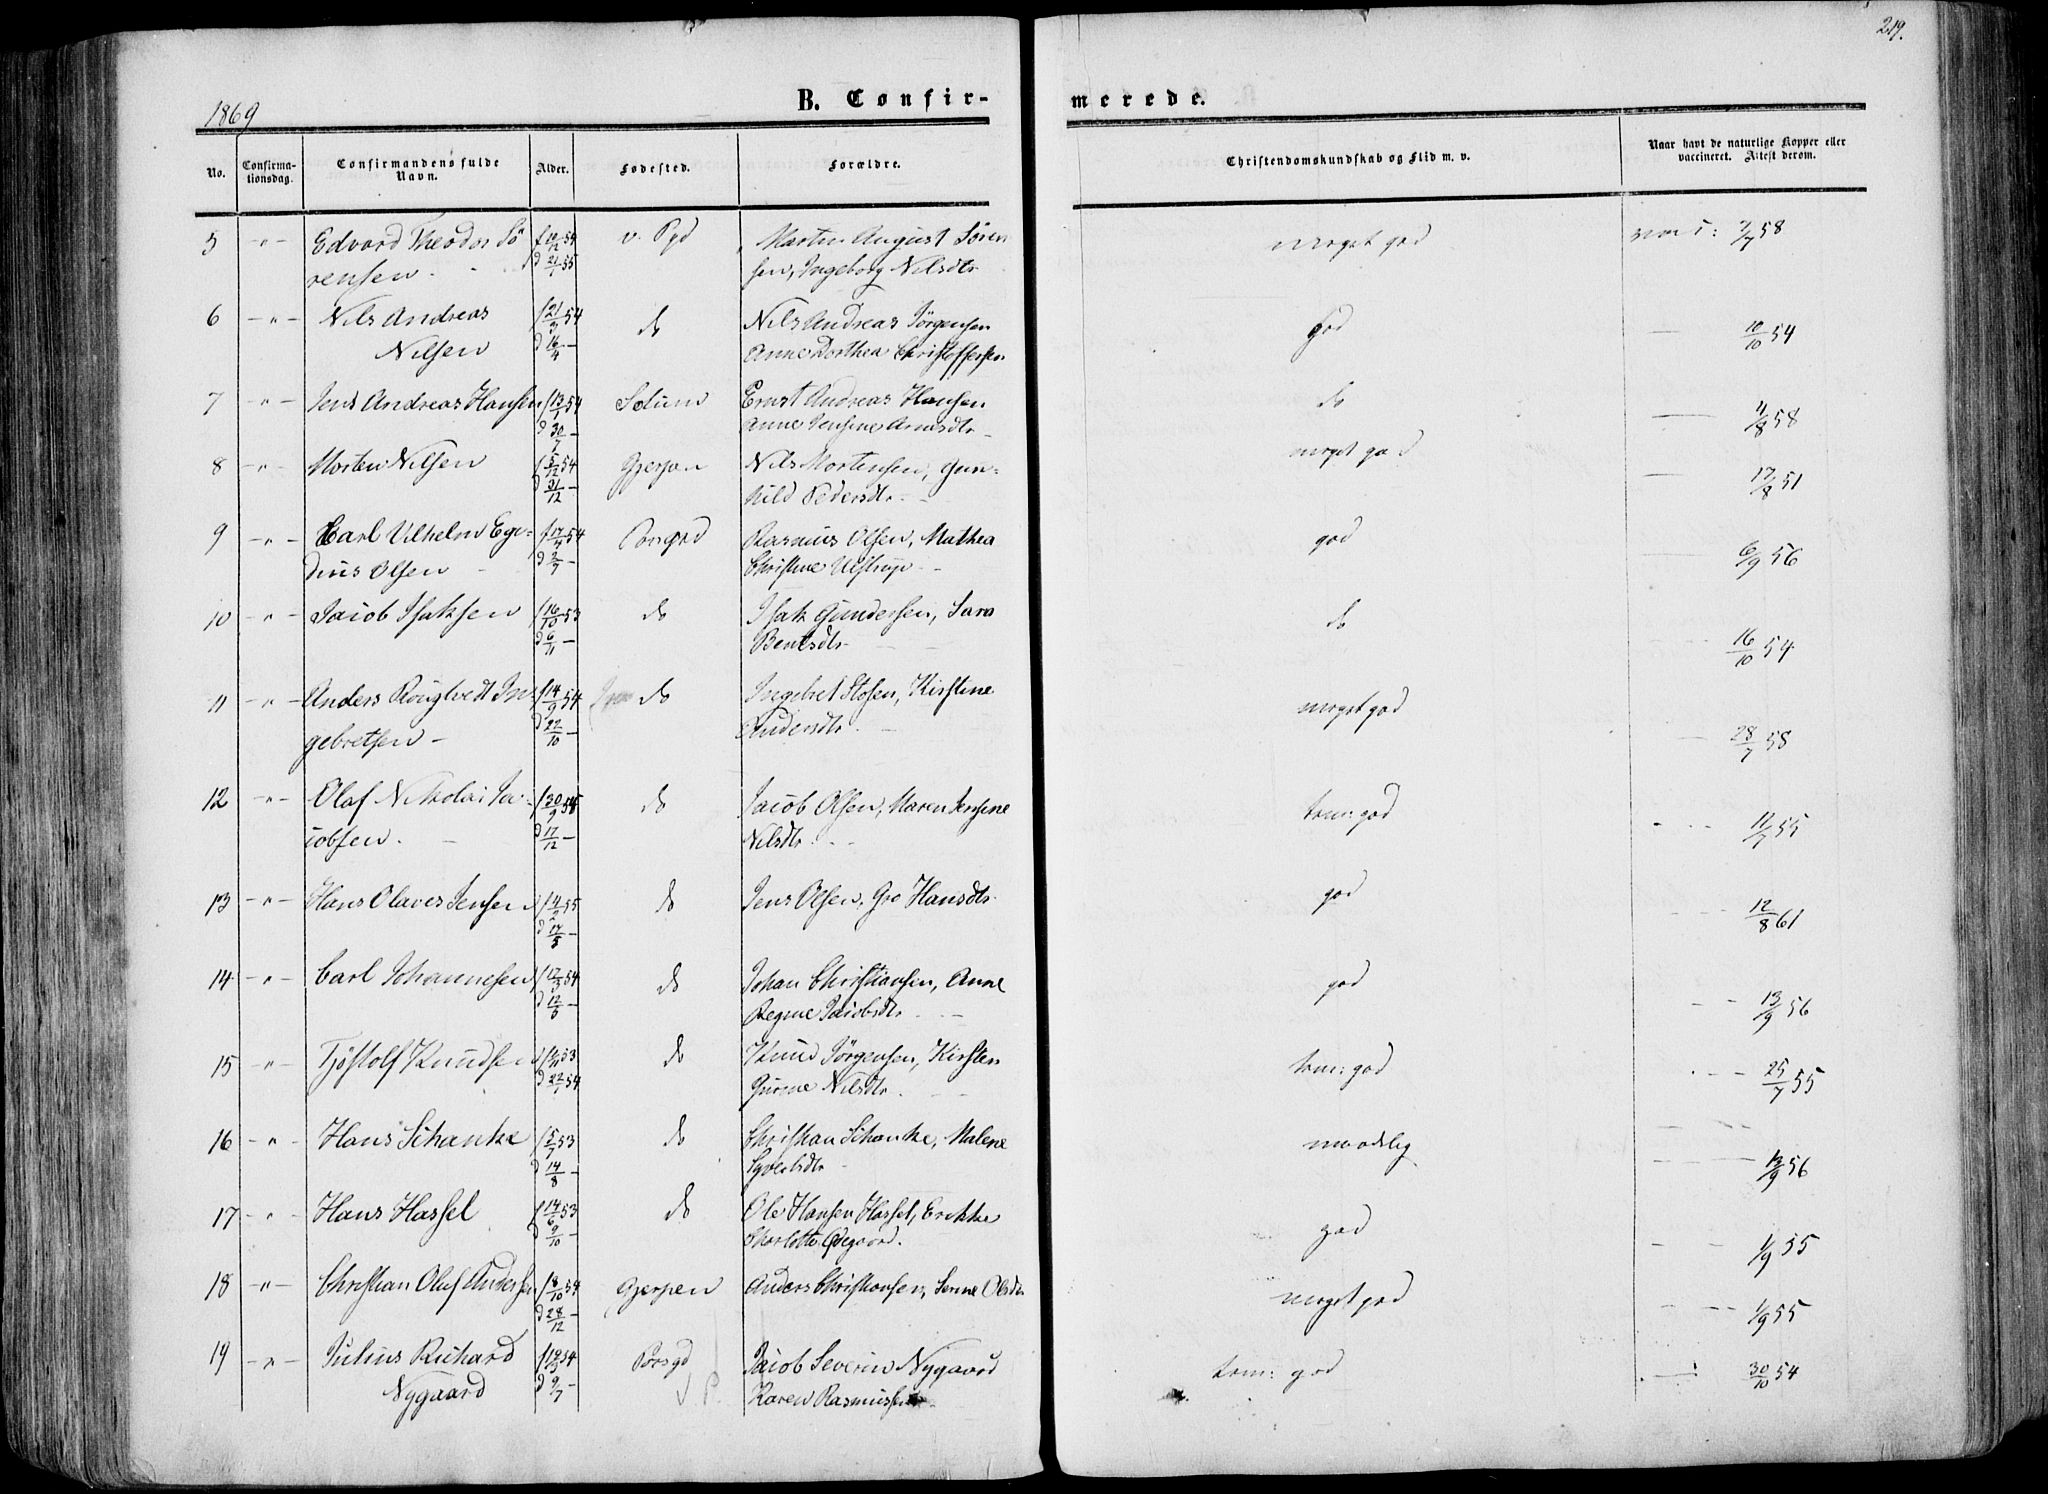 219.
1869
B. Confir-
merede.
No.
Confirma-
tionsdag.
Confirmandens fulde
Navn.
Alder.
Fødested.
Forældre.
Christendomskundskab og Flid m. v.
Naar havt de naturlige Kopper eller
vaccineret. Attest derom.
5 -"- Edvard Theodor Sö f 54 v. Pgd Martin August Sören meget god 58
rensen. d 21/1 55 sen, Ingeborg Nilsdtr
6 -"- Nils Andreas f 21/3 54 do Nils Andreas Jörgensen god 10/10 54
Nilsen d 16/4 - Anne Dorthea Christoffersen
7 -"- Jens Andreas Hansen f 13/1 54 Solum Ernst Andreas Hansen do 4/8 58
d 30/7 - Anne Jensine
8 -"- Morten Nilsen f 5/12 54 Gjerpen Nils Mortensen, Gun- meget god 17/8 51
d 31/12 - hild Pedersdtr
9 -"- Carl Vilhelm Egi- f 17/4 54 Porsgrd Rasmus Olsen, Mathea god 6/9 56
dius Olsen d 2/7 - Christine Ulstrup
10 -"- Jacob Isaksen f 16/10 53 do Isak Gundersen, Sara do 16/10 54
d 6/11 - Bentsdtr
11 -"- Anders Rougtvedt In- f 14/9 54 do Ingebret Kirstine meget god 28/7 58
gebretsen d 22/10 - Andersdtr.
12 -"- Olaf Nikolai Ja- f 30/9 do Jacob Olsen, Maren Jensine tem: god 11/7 55
cobsen. d 17/12 - Nilsdtr.
13 -"- Hans Olaves Jensen f 4/2 55 do Jens Olsen, Gro Hansdtr. god 12/8 61
d 17/5 -
14 -"- Carl Johannesen f 17/3 54 do Johan Christiansen, Anne god 13/9 56
d 12/5 - Regine Jacobsdtr.
15 -"- Tjöstolf Knudsen 53 do Knud Jörgensen, Kirsten tem: god 25/7 55
d 22/1 54 Gurine Nilsdtr.
16 -"- Hans Schanke f 5/7 53 do Christian Schanke, Malene maadelig 56
d 14/8 -
17 -"- Hans Hassel f 14/6 53 do Ole Hansen Hassel, Erikke god 1/9 55
d 9/10 - Charlotte Ødegaard.
18 -"- Christian Oluf Andersen f 8/10 54 Gjerpen Anders Christiansen, meget god 1/9 55
d 28/12
19 -"- Julius Richard 54 Porsgd Jacob Severin Nygaard tem: god 30/10 54
Nygaard d 9/7 - Karen Rasmussen